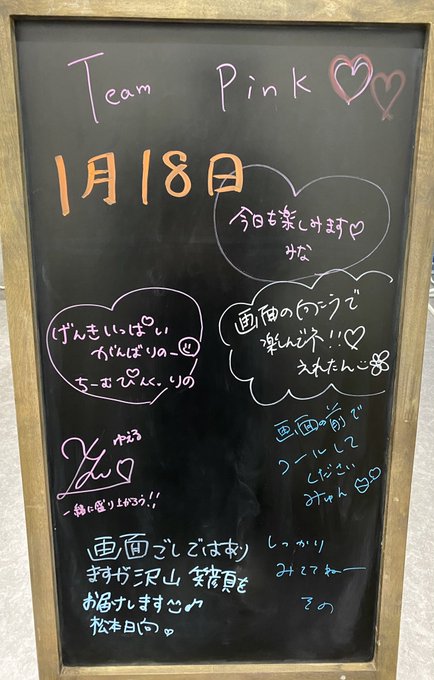 Team Pink♡♡
1月18日
今日も楽しみます♡
みな
げんきいっぱい
がんばりのー
ちーむぴんく りの
画面の向こうで
楽しんでネ!!♡
えれたん
ゆえる
一緒に盛り上がろう!!
画面の前で
コールして
ください
みゅん
画面ごしではあり
ますが沢山笑顔を
お届けします♪
松本日向
しっかり
みててねー
その